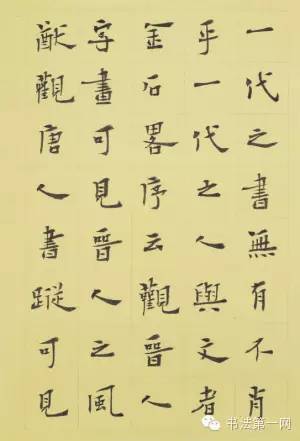 一代之書無有不肖
乎一代之人與文者
金石畧序云觀晉人
字畫可見晉人之風
猷觀唐人書蹤可見
书法第一网